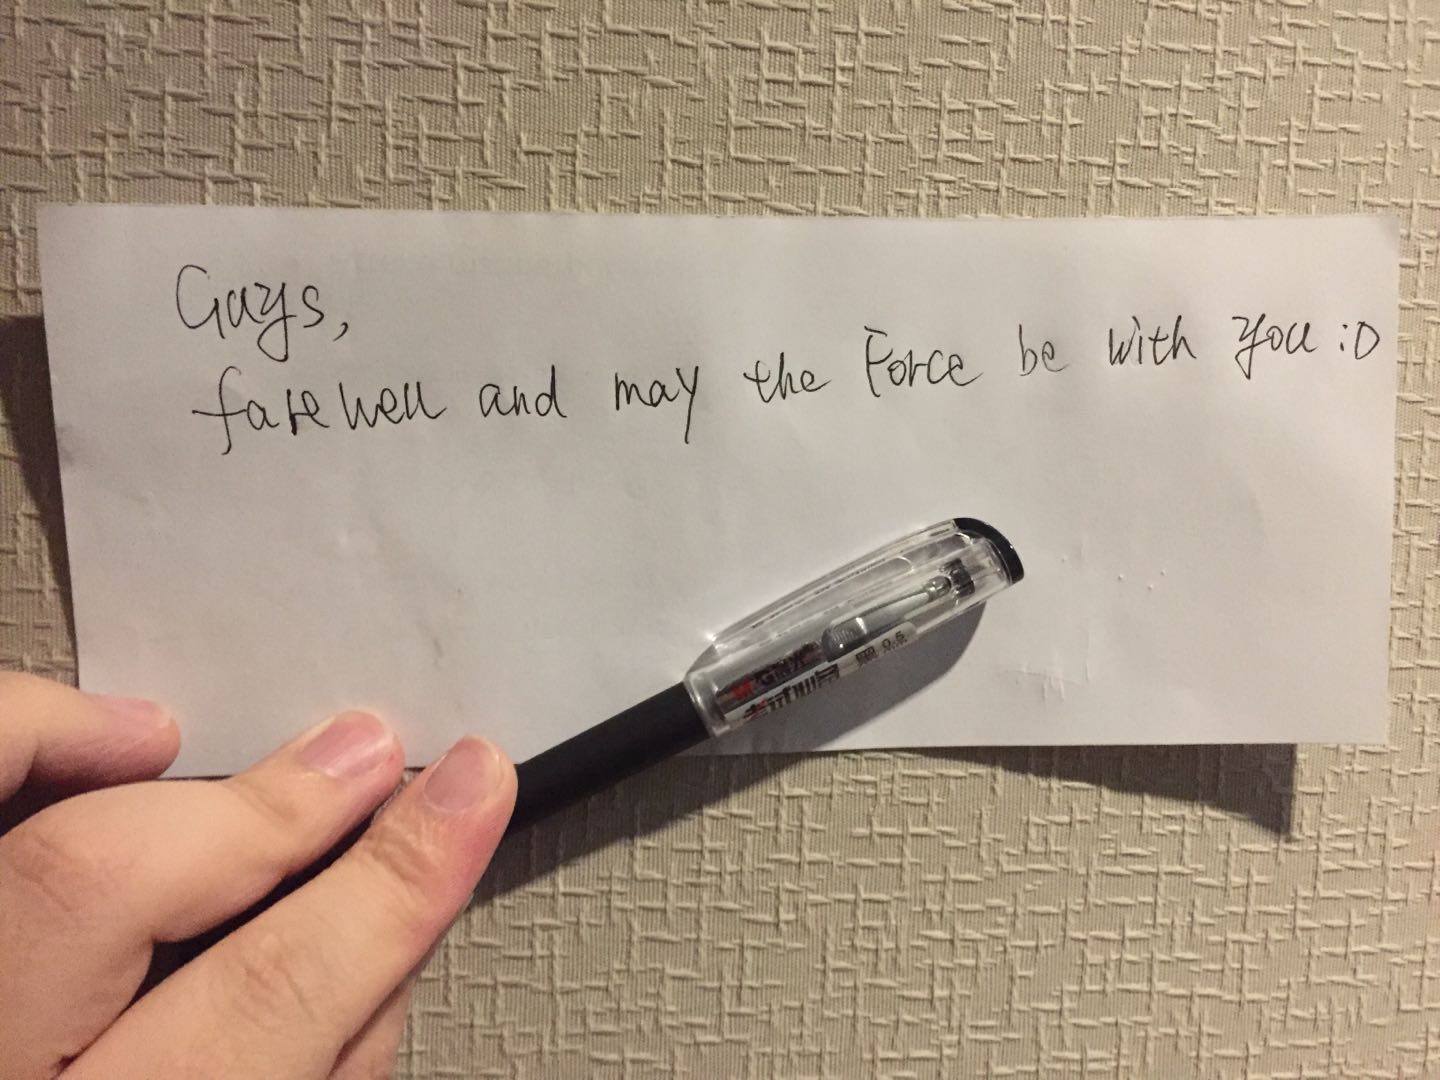 Guys,
farewell and may the Force be with you :D
M&G晨光
考试必备
0.5